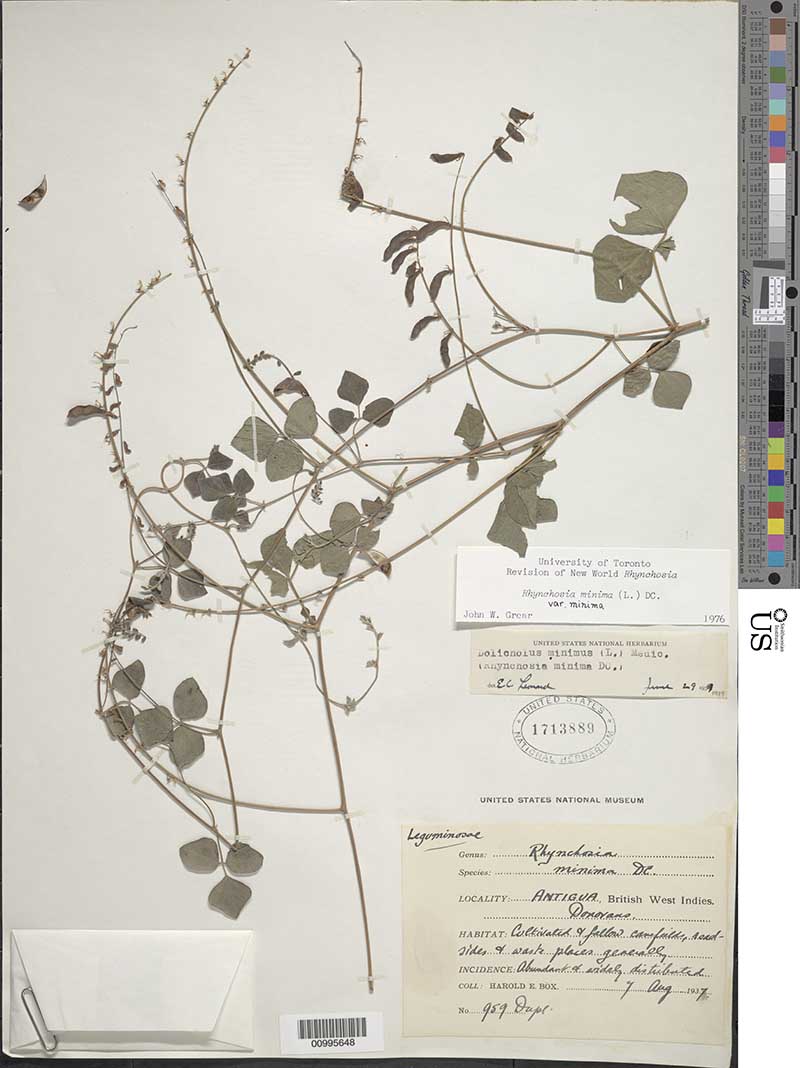 University of Toronto
Revision of New World Rhynchosia
Rhynchosia minima (L.) DC.
var. minima
John W. Grear 1976
UNITED STATES NATIONAL HERBARIUM
Dolicholus minimus (L.) Medic.
(Rhynchosia minima DC.)
E C Leonard June 29
UNITED STATES
1713889
NATIONAL HERBARIUM
UNITED STATES NATIONAL MUSEUM
Leguminosae
Genus: Rhynchosia
Species: minima DC.
LOCALITY: ANTIGUA, British West Indies.
Donovans.
HABITAT: Cultivated & fallow canefields, road-
sides & waste places generally
INCIDENCE: Abundant & widely distributed
COLL: HAROLD E. BOX. 7 Aug 1937
No. 959 Dupl.
00995648
Smithsonian
Institution
US
Golden Thread